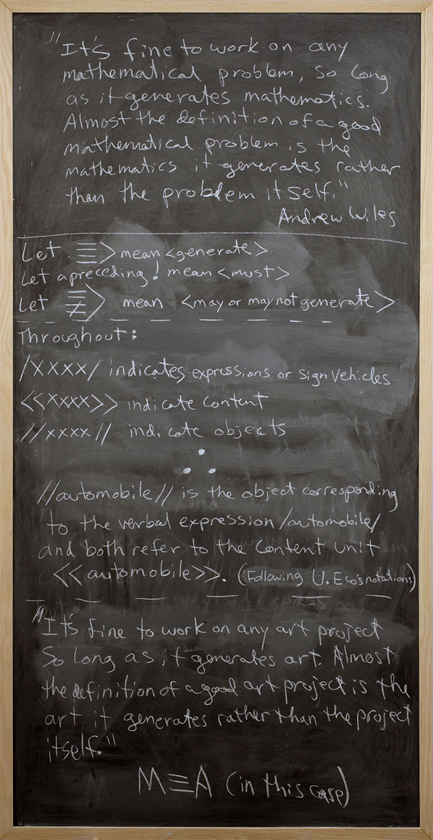 "It's fine to work on any
mathematical problem, so long
as it generates mathematics.
Almost the definition of a good
mathematical problem is the
mathematics it generates rather
than the problem itself."
Andrew Wiles
Let ≡> mean <generate>
Let a preceding ! mean <must>
Let ≢> mean <may or may not generate>
Throughout:
/xxxx/ indicates expressions or sign vehicles
<<xxxx>> indicate content
//xxxx// indicate objects
∴
//automobile// is the object corresponding
to the verbal expression /automobile/
and both refer to the content unit
<<automobile>>. (Following U. Eco's notations)
"It's fine to work on any art project
So long as it generates art. Almost
the definition of a good art project is the
art it generates rather than the project
itself."
M≡A (in this case)